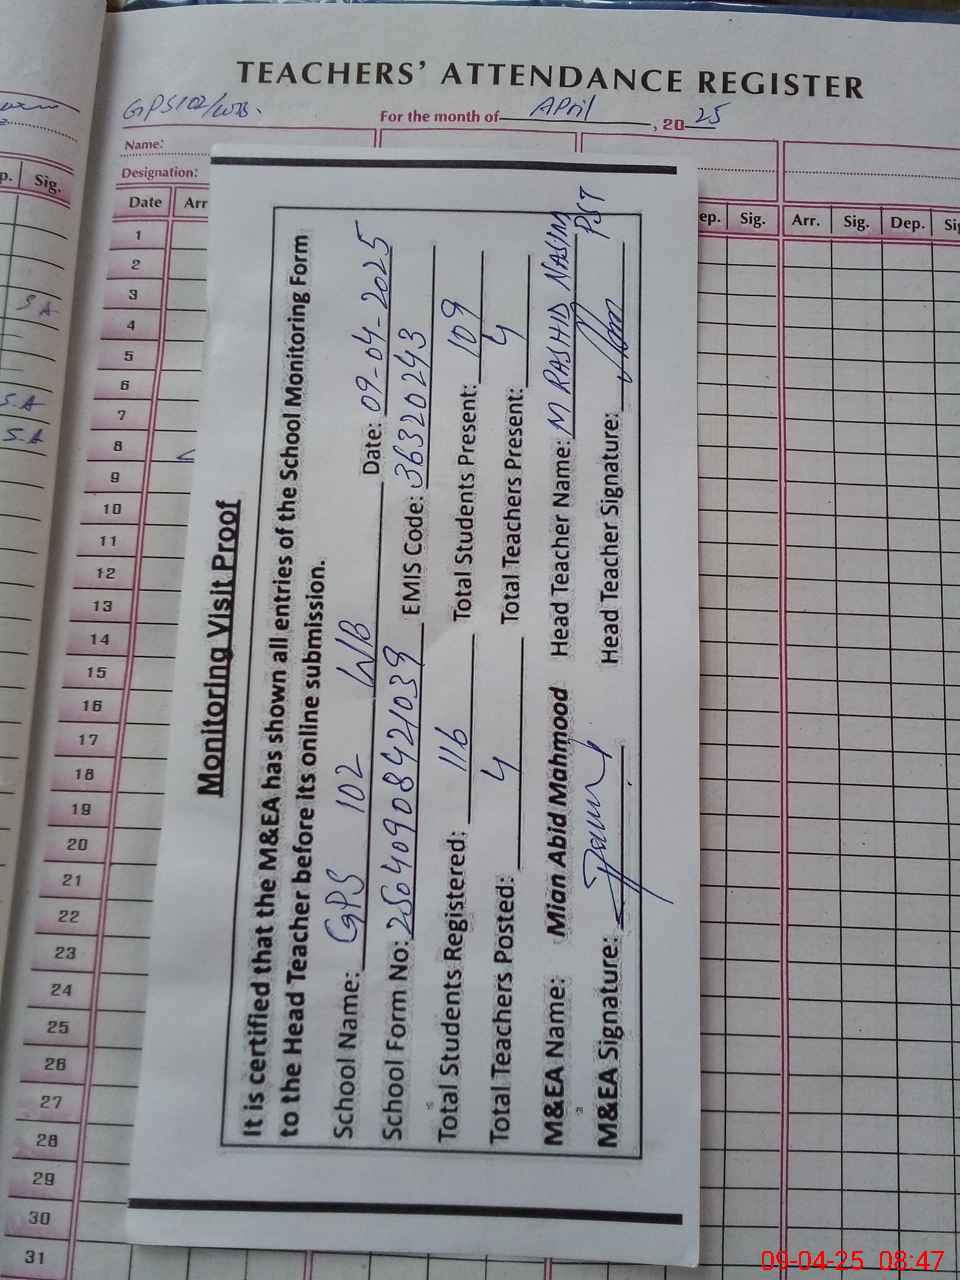 TEACHERS' ATTENDANCE REGISTER
GPS 102/WB.
For the month of April, 2025
Name:
Designation:
p. Sig.
Date Arr
ep. Sig. Arr. Sig. Dep. Sig
1
2
3
4
5
6
7
8
9
10
11
12
13
14
15
16
17
18
19
20
21
22
23
24
25
26
27
28
29
30
31
S.A
S.A
S.A
Monitoring Visit Proof
It is certified that the M&EA has shown all entries of the School Monitoring Form
to the Head Teacher before its online submission.
School Name: GPS 102 WB Date: 09-04-2025
School Form No: 25040908421039 EMIS Code: 36320243
Total Students Registered: 116 Total Students Present: 109
Total Teachers Posted: 4 Total Teachers Present: 4
M&EA Name: Mian Abid Mahmood Head Teacher Name: M RASHID NASIM
PST
M&EA Signature: Head Teacher Signature:
09-04-25 08:47